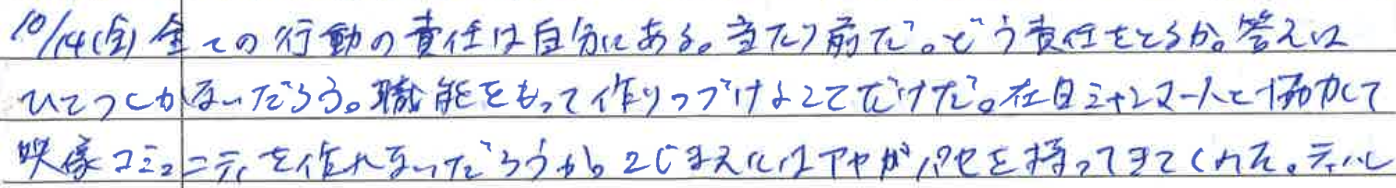 10/14(金) 全ての行動の責任は自分にある。当たり前だ。どう責任をとるか。答えは
ひとつしかないだろう。職能をもって作りつづけることだけだ。在日ミャンマー人と協力して
映像コミュニティを作れないだろうか。2じまえにはアヤがパセを持ってきてくれた。ディル